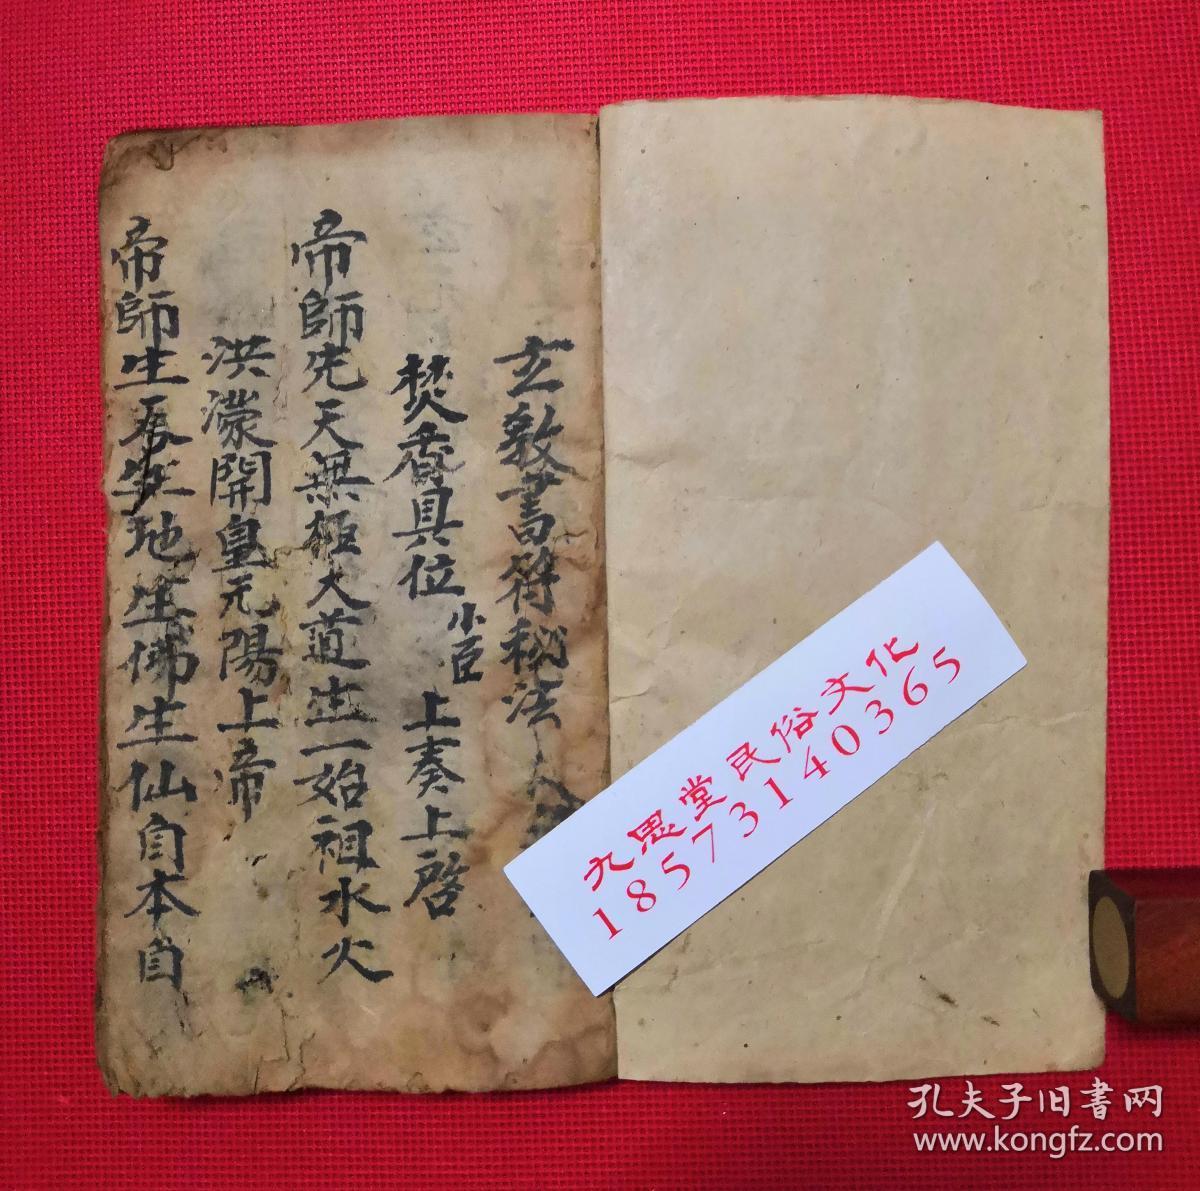 玄教書符秘法
焚香具位小臣上奏上啓
帝師先天無極大道生一始祖水火
洪濛開皇元陽上帝
帝師生天生地生佛生仙自本自
九思堂民俗文化
18573140365
孔夫子旧書网
www.kongfz.com